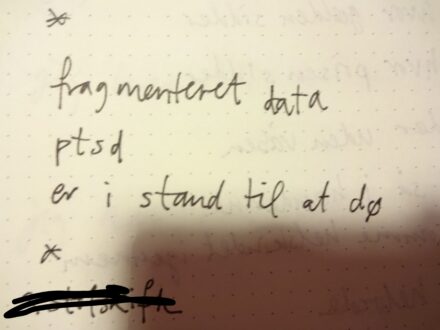 *
fragmenteret data
ptsd
er i stand til at dø
*